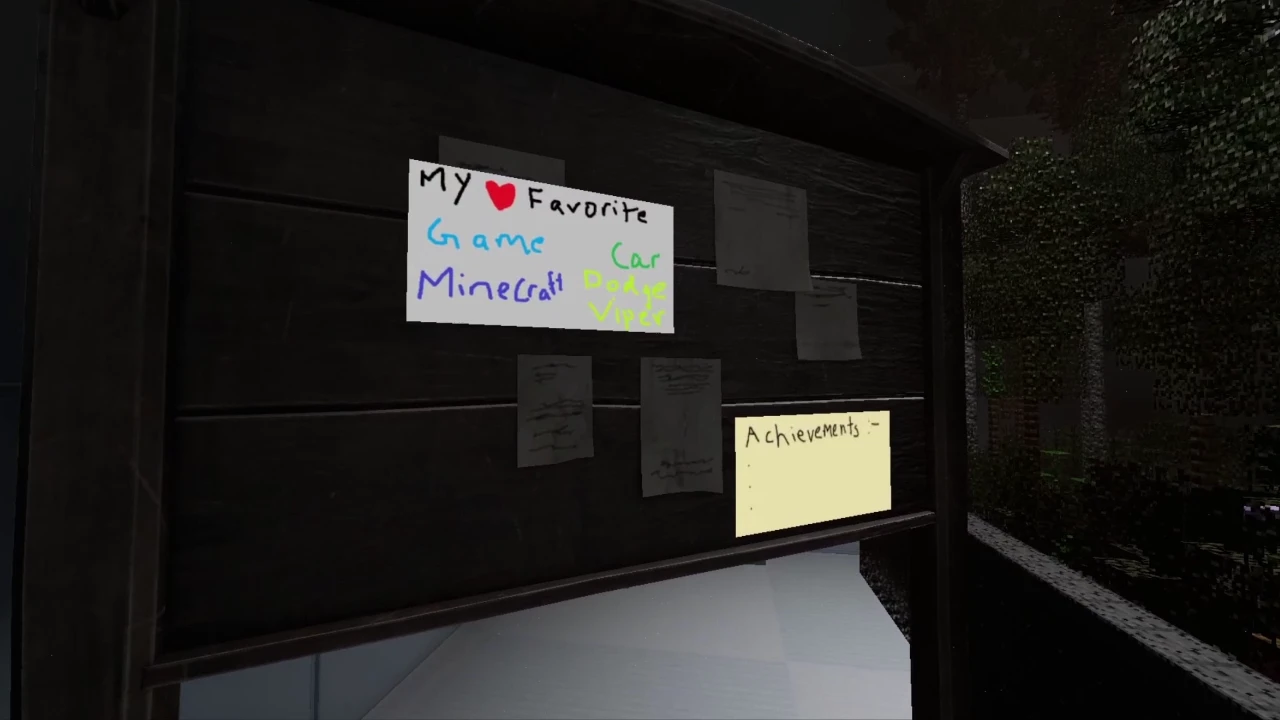 MY ❤ Favorite
Game
Minecraft
Car
Dodge
Viper
Achievements :-